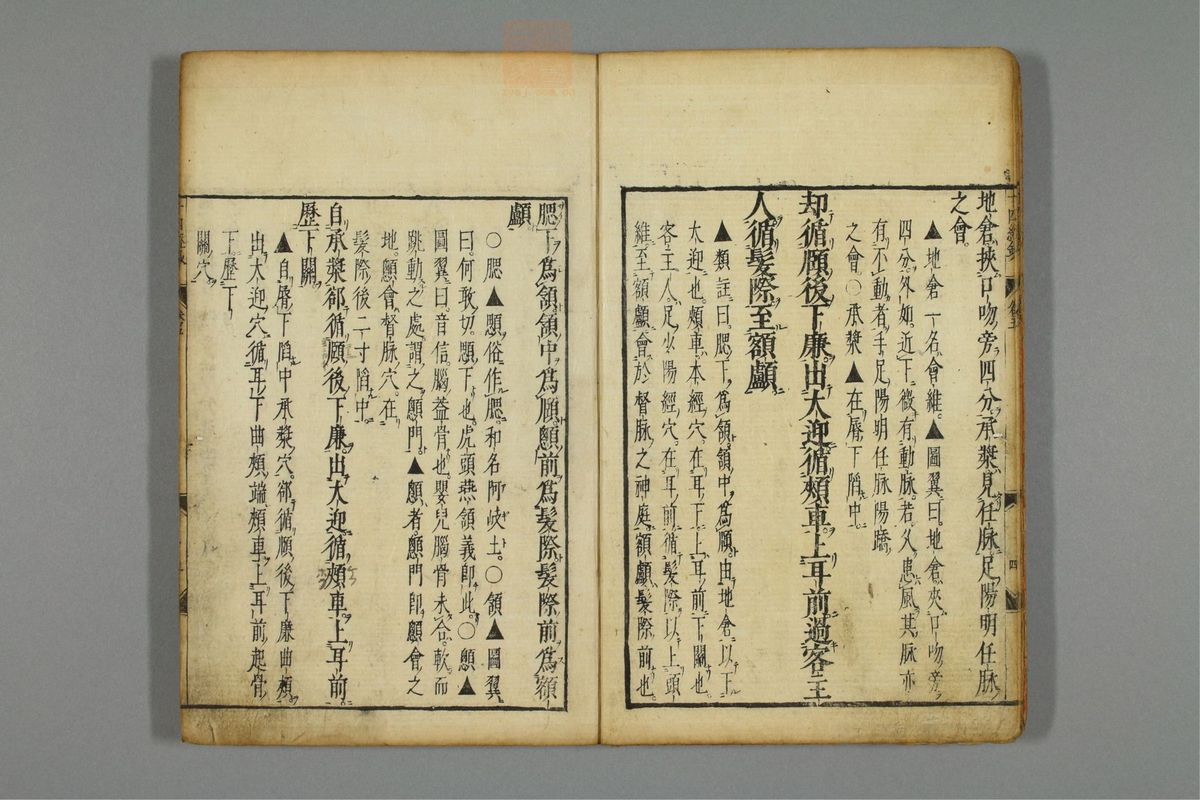 地倉挾口吻旁四分承漿見任脉足陽明任脉
之會
▲地倉一名會維▲圖翼曰地倉夾口吻旁
四分外如近下微有動脉若久患風其脉亦
有不動者手足陽明任脉陽蹻
之會〇承漿▲在脣下䧟中
却循頤後下廉出大迎循頰車上耳前過客主
人循髮際至額顱
▲類註曰腮下爲頷頷中爲頤由地倉以下
大迎也頰車本經穴在耳下上耳前下關也
客主人足少陽經穴在耳前循髮際以上頭
維至額顱會於督脉之神庭額顱髮際前也
腮下爲頷頷中爲頤顖前爲髮際髮際前爲額
顱
〇腮▲顋俗作腮和名阿岐土〇頷▲圖翼
曰何敢切顋下也虎頭燕頷義即此〇顖▲
圖翼曰音信腦蓋骨也嬰兒腦骨未合軟而
跳動之處謂之顖門▲顖者顖門即顖會之
地顖會督脉穴在
髮際後二寸䧟中
自承漿郤循頤後下廉出大迎循頰車上耳前
歷下關
▲自脣下䧟中承漿穴郤循頤後下廉曲頰
出大迎穴循耳下曲頰端頰車上耳前起骨
下歷下
關穴
四